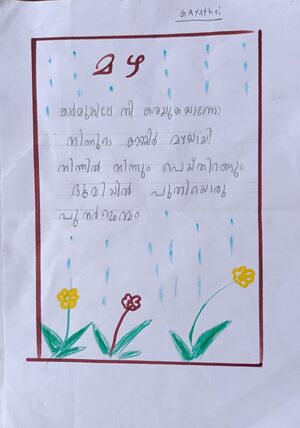 GAYAthri
മഴ
കാർമുകിലേ നീ കരയുകയാണോ
നിന്നുടെ കണ്ണീർ മഴയായി
നിന്നിൽ നിന്നും പെയ്തിറങ്ങും
ഭൂവിൽ പുതിയൊരു
പുനർജന്മം